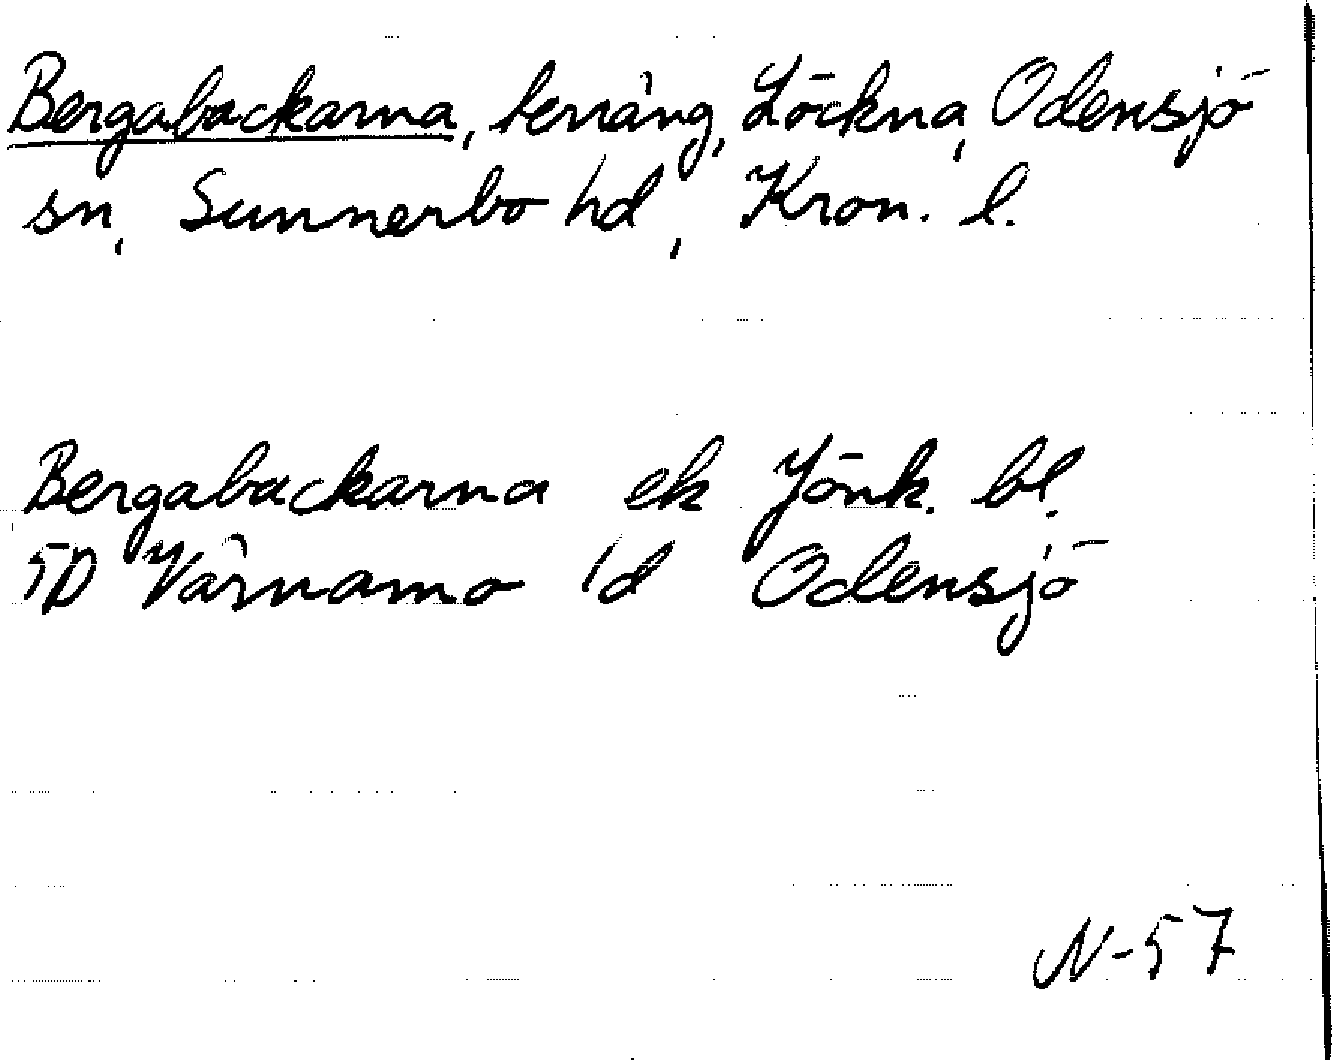 Bergabackarna, terräng, Löckna, Odensjö
sn, Sunnerbo hd, Kron. l.
Bergabackarna ek Jönk. bl.
5D Värnamo 1d Odensjö
N-57